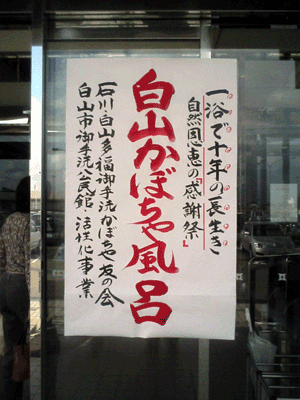 一浴で十年の長生き
自然恩恵の『感謝祭』
白山かぼちゃ風呂
石川・白山多福御手洗かぼちゃ友の会
白山市御手洗公民館・活性化事業